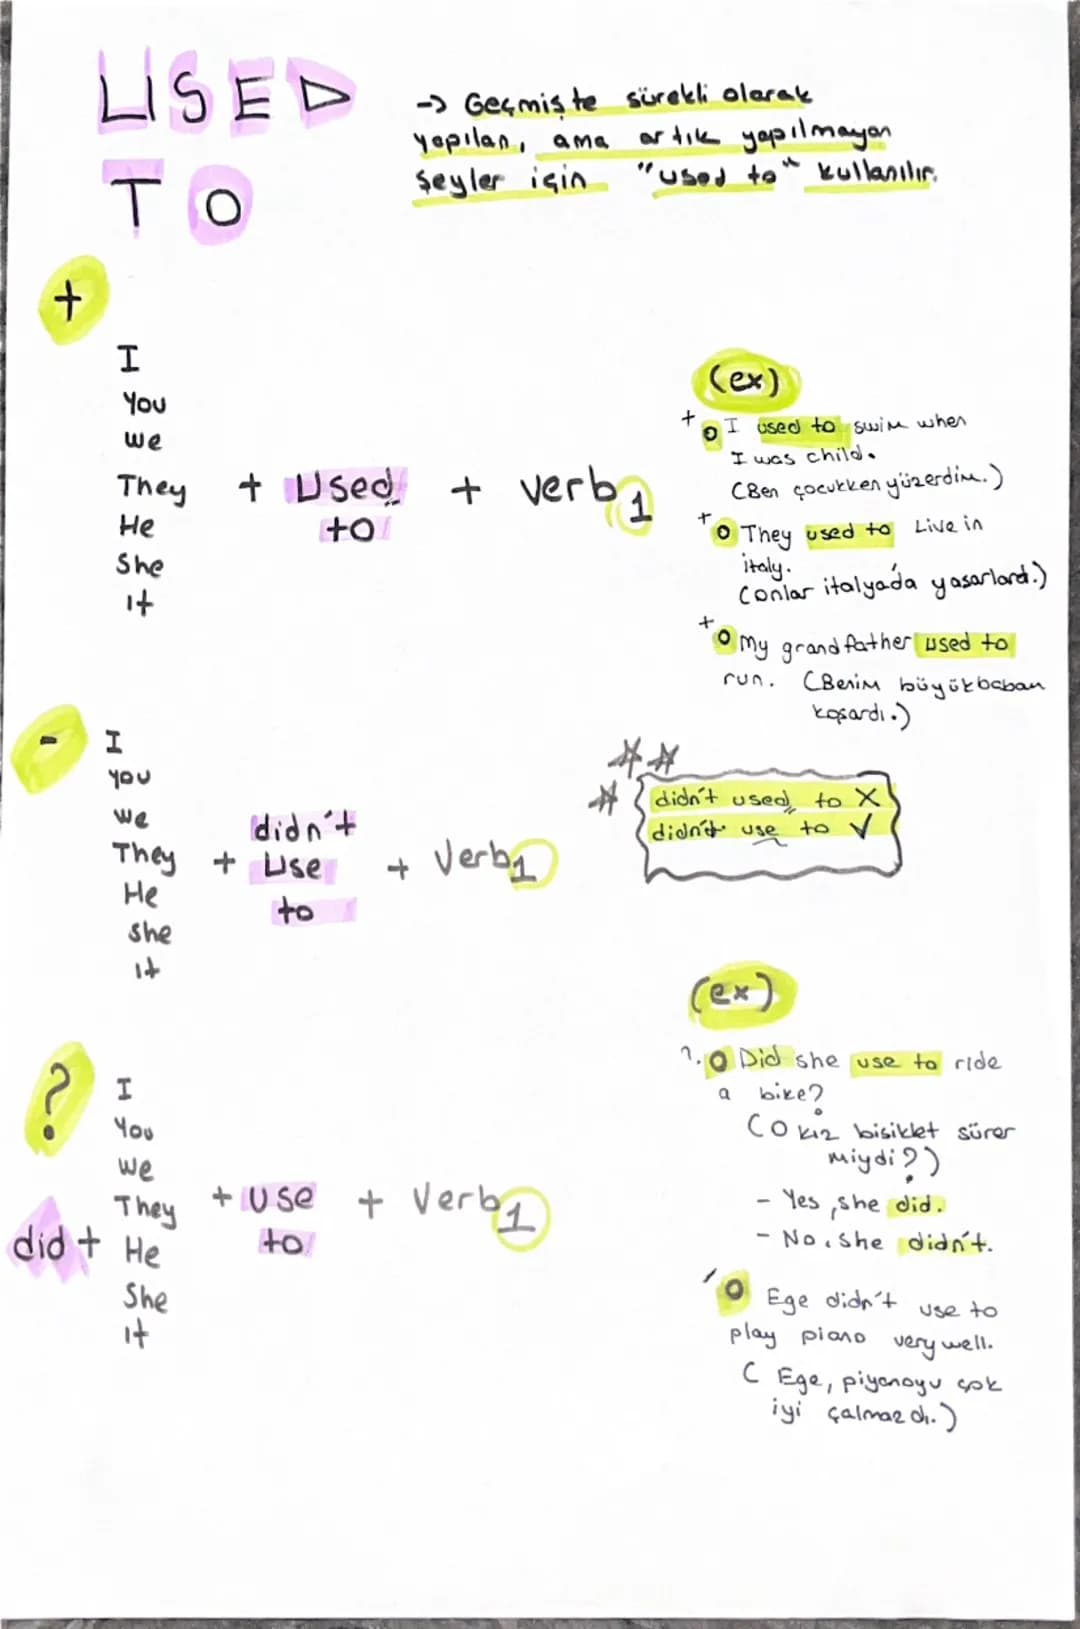 USED
TO
-> Geçmişte sürekli olarak
yapılan, ama artık yapılmayan
şeyler için "used to" kullanılır.
+
I
You
we
They
He
She
It
+ Used to + verb1
(ex)
+ o I used to swim when
I was child.
(Ben çocukken yüzerdim.)
+ o They used to Live in
italy.
(onlar italya'da yasarlard.)
+ o My grandfather used to
run. (Benim büyükbabam
koşardı.)
-
I
you
we
They
He
she
it
+ didn't Use to + Verb1
didn't used to X
didn't use to ✓
?
did +
I
You
we
They
He
She
it
+ use to + Verb1
(ex)
?. o Did she use to ride
a bike?
(O kız bisiklet sürer
miydi?)
- Yes, she did.
- No, she didn't.
- o Ege didn't use to
play piano very well.
( Ege, piyanoyu çok
iyi çalmazdı.)